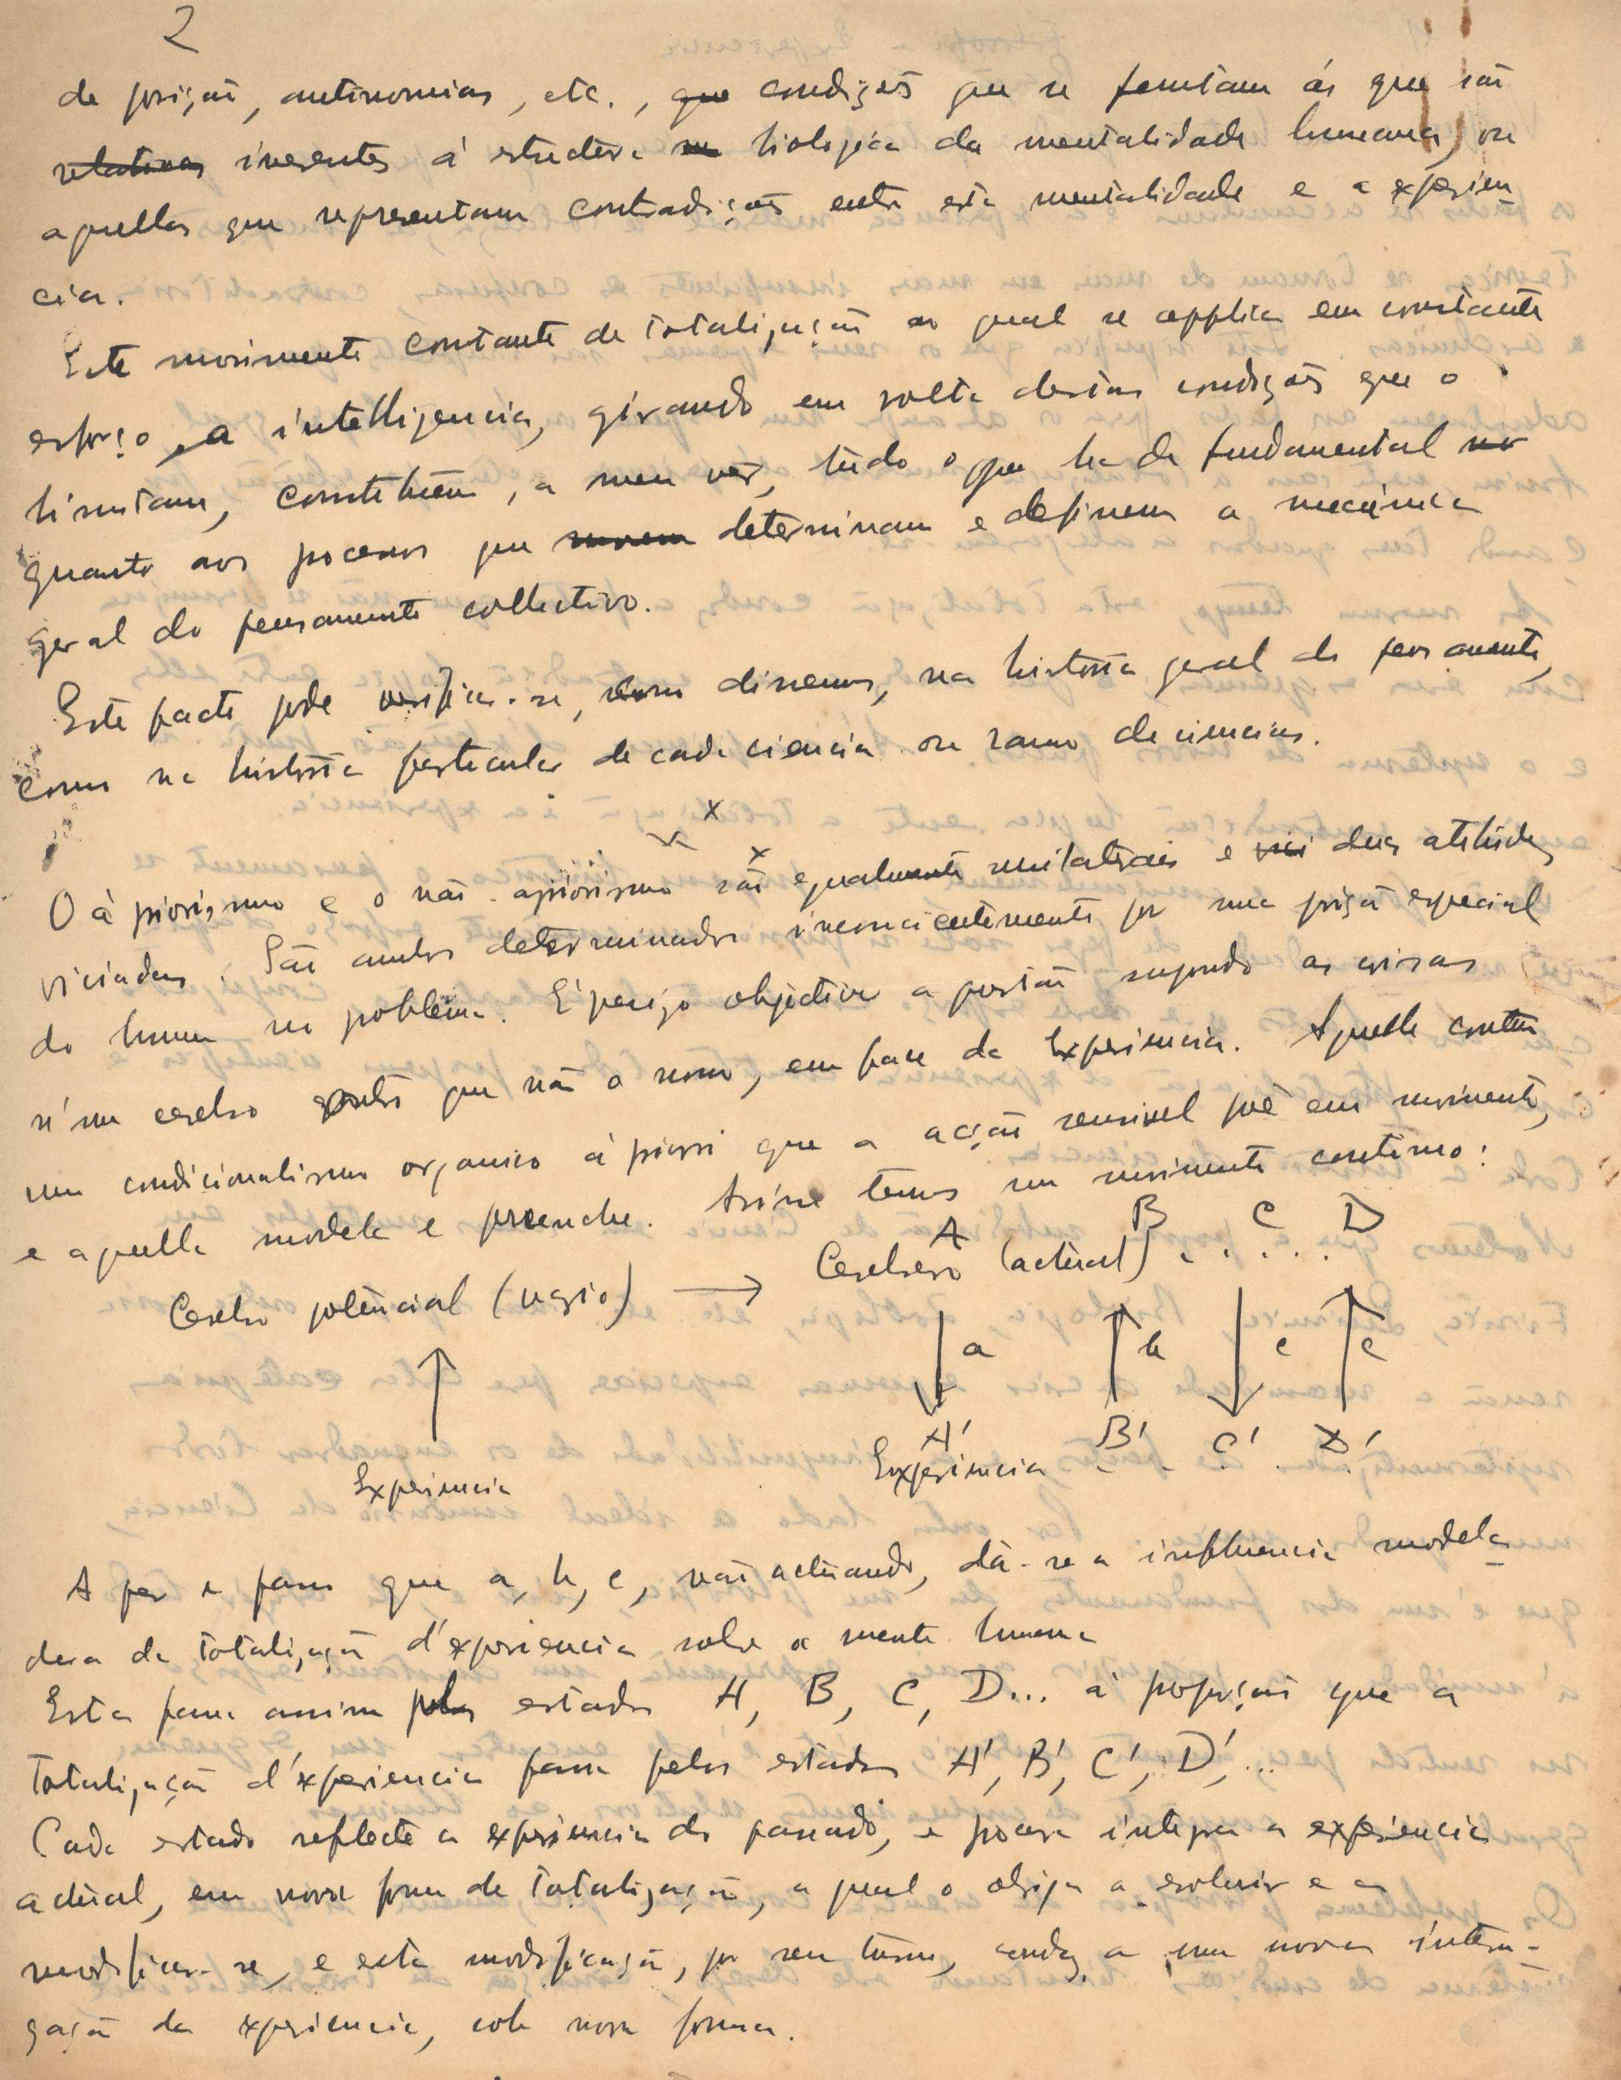 2
de posição, antinomias, etc., que condições que se juntam ás que são
relativas inerentes á estructura biologica da mentalidade humana, ou
aquellas que representam contradições entre esta mentalidade e a experien
cia.
Este movimento constante de totalização ao qual se applica em constante
esforço, a intelligencia, girando em volta destas condições que o
limitam, constituem, a meu vêr, tudo o que ha de fundamental
quanto aos processos que movem determinam e definem a mecánica
geral do pensamento collectivo.
Este facto pode verificar-se, como dissemos, na historia geral do pensamento,
como na historia particular de cada ciencia ou ramo de ciencias.
x
x
O á priorismo e o não-apriorismo são egualmente unilatrais e duas atitudes
viciadas. São ambos determinados inconscientemente por uma posição especial
do homem no problema. É perigo objectivar a questão supondo as coisas
n'um cerebro que não o nosso, em face da Experiencia. Aquelle contem
um condicionalismo organico á priori que a acção sensivel põe em movimento,
e aquella modela e preenche. Assim temos um movimento continuo:
A B C D
Cerebro potêncial (vazio) → Cerebro (actual) . . . . .
a b c c
A' B' C' D'
Experiencia Experiencia . . . . .
A par e passo que a, b, c, vão actuando, dá-se a influencia modela
dora da totalização d'experiencia sobre a mente humana
Esta passa assim pelos estados A, B, C, D... á proporção que a
totalização d'experiencia passa pelos estados A', B', C', D', ...
Cada estado reflecte a experiencia do passado, e procura integrar a experiencia
actual, em nova forma de totalização, a qual o obriga a evoluir e a
modificar-se, e esta modificação, por seu turno, conduz a uma nova interro-
gação da experiencia, sob nova forma.